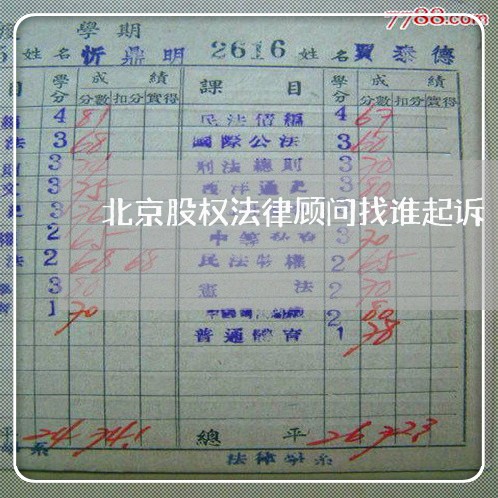 7788.com
學期
姓名 忻鼎明 2616 姓名 賈泰德
目 學分 成績 分數 扣分 實得 課目 學分 成績 分數 扣分 實得
4 81 民法債編 4 67
法 3 68 國際公法 3 60
3 刑法總則 3 70
3 75 西洋通史 3 80
北京股权法律顾问找谁起诉
2 65 3 70
法 2 68 68 民法物權 2 65
3 80 憲法 2 70
1 70 2 80
普通體育 1 78
平 24 74.1 總平 26 72.3
系 法律學系